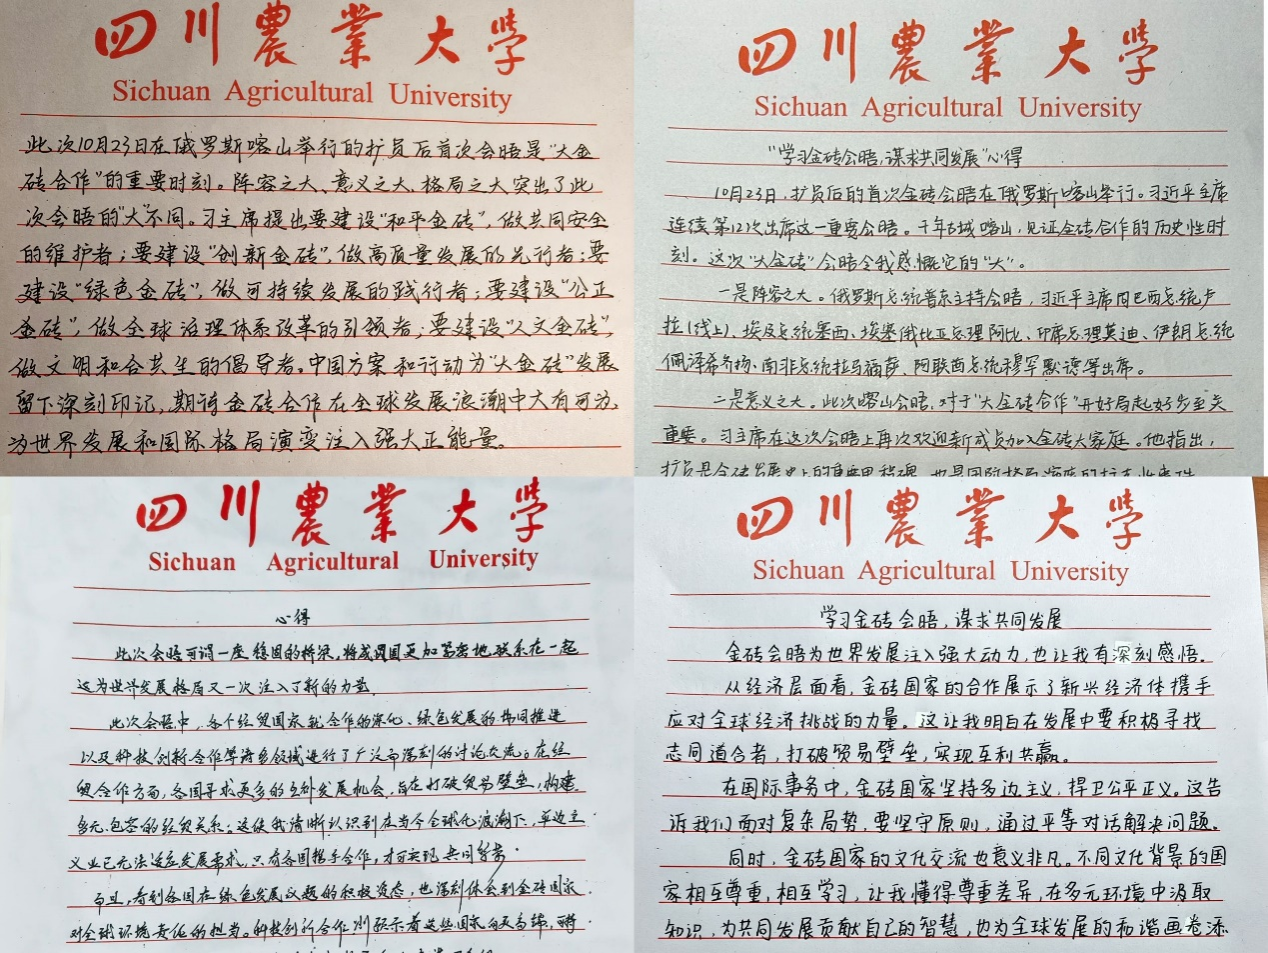 四川農業大学
Sichuan Agricultural University
此次10月23日在俄罗斯喀山举行的扩员后首次会晤是“大金
砖合作”的重要时刻。阵容之大、意义之大、格局之大突出了此
次会晤的“大”不同。习主席提出要建设“和平金砖”,做共同安全
的维护者;要建设“创新金砖”,做高质量发展的先行者;要
建设“绿色金砖”,做可持续发展的践行者;要建设“公正
金砖”,做全球治理体系改革的引领者;要建设“人文金砖”,
做文明和合共生的倡导者。中国方案和行动为“大金砖”发展
留下深刻印记,期待金砖合作在全球发展浪潮中大有可为,
为世界发展和国际格局演变注入强大正能量。
四川農業大学
Sichuan Agricultural University
“学习金砖会晤,谋求共同发展”心得
10月23日,扩员后的首次金砖会晤在俄罗斯喀山举行。习近平主席
连续第12次出席这一重要会晤。千年古城喀山,见证金砖合作的历史性时
刻。这次“大金砖”会晤令我感慨它的“大”。
一是阵容之大。俄罗斯总统普京主持会晤,习近平主席同巴西总统卢
拉(线上)、埃及总统塞西、埃塞俄比亚总理阿比、印度总理莫迪、伊朗总统
佩泽希齐扬、南非总统拉马福萨、阿联酋总统穆罕默德等出席。
二是意义之大。此次喀山会晤,对于“大金砖合作”开好局起好步至关
重要。习主席在这次会晤上再次欢迎新成员加入金砖大家庭。他指出,
扩员是金砖发展史上的重要里程碑,也是国际格局演变的标志性事件
四川農業大学
Sichuan Agricultural University
心得
此次会晤可谓一座稳固的桥梁,将成员国更加紧密地联系在一起
这为世界发展格局又一次注入了新的力量。
此次会晤中,各个经贸国家就合作的深化、绿色发展的共同推进
以及科技创新合作等诸多领域进行了广泛而深刻的讨论交流。在经
贸合作方面,各国寻求更多的互补发展机会,旨在打破贸易壁垒,构建
多元、包容的经贸关系。这使我清晰认识到在当今全球化浪潮下,单边主
义业已无法适应发展需求,只有各国携手合作,才可实现共同繁荣.
而且,看到各国在绿色发展议题的积极姿态,也深刻体会到金砖国家
对全球环境责任的担当。科技创新合作则预示着这些国家的
四川農業大学
Sichuan Agricultural University
学习金砖会晤,谋求共同发展
金砖会晤为世界发展注入强大动力,也让我有深刻感悟。
从经济层面看,金砖国家的合作展示了新兴经济体携手
应对全球经济挑战的力量。这让我明白在发展中要积极寻找
志同道合者,打破贸易壁垒,实现互利共赢。
在国际事务中,金砖国家坚持多边主义,捍卫公平正义。这告
诉我们面对复杂局势,要坚守原则,通过平等对话解决问题。
同时,金砖国家的文化交流也意义非凡。不同文化背景的国
家相互尊重,相互学习,让我懂得尊重差异,在多元环境中汲取
知识,为共同发展贡献自己的智慧,也为全球发展的和谐画卷添